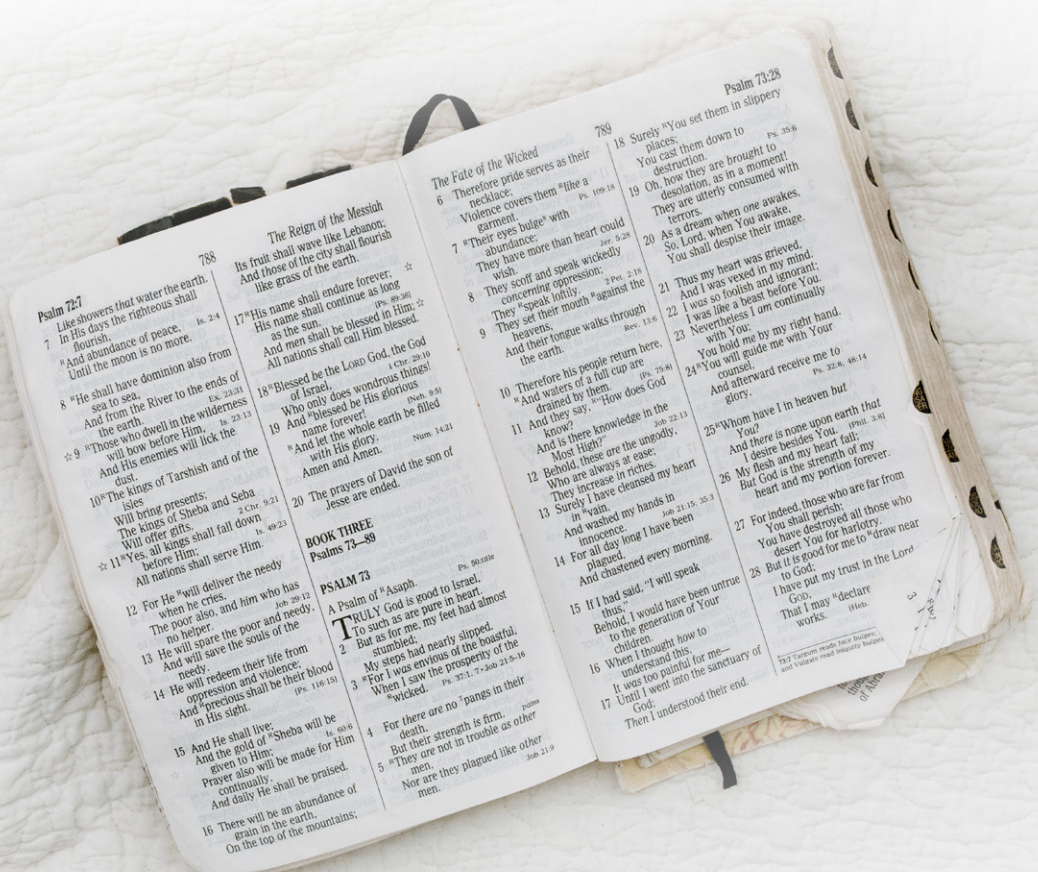 Psalm 72:7
788
The Reign of the Messiah
Like showers that water the earth.
7 In His days the righteous shall
flourish,
And abundance of peace, Is. 2:4
Until the moon is no more.
8 He shall have dominion also from
sea to sea,
And from the River to the ends of
the earth. Ex. 23:31
☆9 Those who dwell in the wilderness
will bow before Him, Is. 23:13
And His enemies will lick the
dust.
10 The kings of Tarshish and of the
isles
Will bring presents;
The kings of Sheba and Seba
Will offer gifts. 2 Chr. 9:21
☆11 Yes, all kings shall fall down
before Him; Is. 49:23
All nations shall serve Him.
12 For He will deliver the needy
when he cries,
The poor also, and him who has
no helper. Job 29:12
13 He will spare the poor and needy,
And will save the souls of the
needy.
14 He will redeem their life from
oppression and violence;
And precious shall be their blood
in His sight. [Ps. 116:15]
15 And He shall live;
And the gold of Sheba will be
given to Him; Is. 60:6
Prayer also will be made for Him
continually,
And daily He shall be praised.
16 There will be an abundance of
grain in the earth,
On the top of the mountains;
Its fruit shall wave like Lebanon;
And those of the city shall flourish
like grass of the earth.
17 His name shall endure forever; ☆
His name shall continue as long
as the sun. [Ps. 89:36]
And men shall be blessed in Him; ☆
All nations shall call Him blessed.
18 Blessed be the LORD God, the God
of Israel, 1 Chr. 29:10
Who only does wondrous things!
19 And blessed be His glorious
name forever! [Neh. 9:5]
And let the whole earth be filled
with His glory. Num. 14:21
Amen and Amen.
20 The prayers of David the son of
Jesse are ended.
BOOK THREE
Psalms 73—89
PSALM 73
A Psalm of Asaph. Ps. 50:title
TRULY God is good to Israel,
To such as are pure in heart.
2 But as for me, my feet had almost
stumbled;
My steps had nearly slipped.
3 For I was envious of the boastful,
When I saw the prosperity of the
wicked. Ps. 37:1, 7 • Job 21:5–16
For there are no pangs in their
4 death, pains
But their strength is firm.
5 They are not in trouble as other
men,
Nor are they plagued like other
men. Job 21:9
The Fate of the Wicked
789
Psalm 73:28
6 Therefore pride serves as their
necklace;
Violence covers them like a
garment. Ps. 109:18
7 Their eyes bulge with
abundance;
They have more than heart could
wish. Jer. 5:28
8 They scoff and speak wickedly
concerning oppression;
They speak loftily. 2 Pet. 2:18
9 They set their mouth against the
heavens,
And their tongue walks through
the earth. Rev. 13:6
10 Therefore his people return here,
And waters of a full cup are
drained by them. [Ps. 75:8]
11 And they say, "How does God
know?
And is there knowledge in the
Most High?" Job 22:13
12 Behold, these are the ungodly,
Who are always at ease;
They increase in riches.
13 Surely I have cleansed my heart
in vain,
And washed my hands in
innocence. Job 21:15; 35:3
14 For all day long I have been
plagued,
And chastened every morning.
15 If I had said, "I will speak
thus,"
Behold, I would have been untrue
to the generation of Your
children.
16 When I thought how to
understand this,
It was too painful for me—
17 Until I went into the sanctuary of
God;
Then I understood their end.
18 Surely You set them in slippery
places;
You cast them down to
destruction. Ps. 35:6
19 Oh, how they are brought to
desolation, as in a moment!
They are utterly consumed with
terrors.
20 As a dream when one awakes,
So, Lord, when You awake,
You shall despise their image.
21 Thus my heart was grieved,
And I was vexed in my mind.
22 I was so foolish and ignorant;
I was like a beast before You.
23 Nevertheless I am continually
with You;
You hold me by my right hand.
24 You will guide me with Your
counsel,
And afterward receive me to
glory. Ps. 32:8; 48:14
25 Whom have I in heaven but
You?
And there is none upon earth that
I desire besides You. [Phil. 3:8]
26 My flesh and my heart fail;
But God is the strength of my
heart and my portion forever.
27 For indeed, those who are far from
You shall perish;
You have destroyed all those who
desert You for harlotry.
28 But it is good for me to draw near
to God;
I have put my trust in the Lord
GOD,
That I may declare
works. [Heb.
73:7 Targum reads face bulges;
and Vulgate read iniquity bulges
of Abra